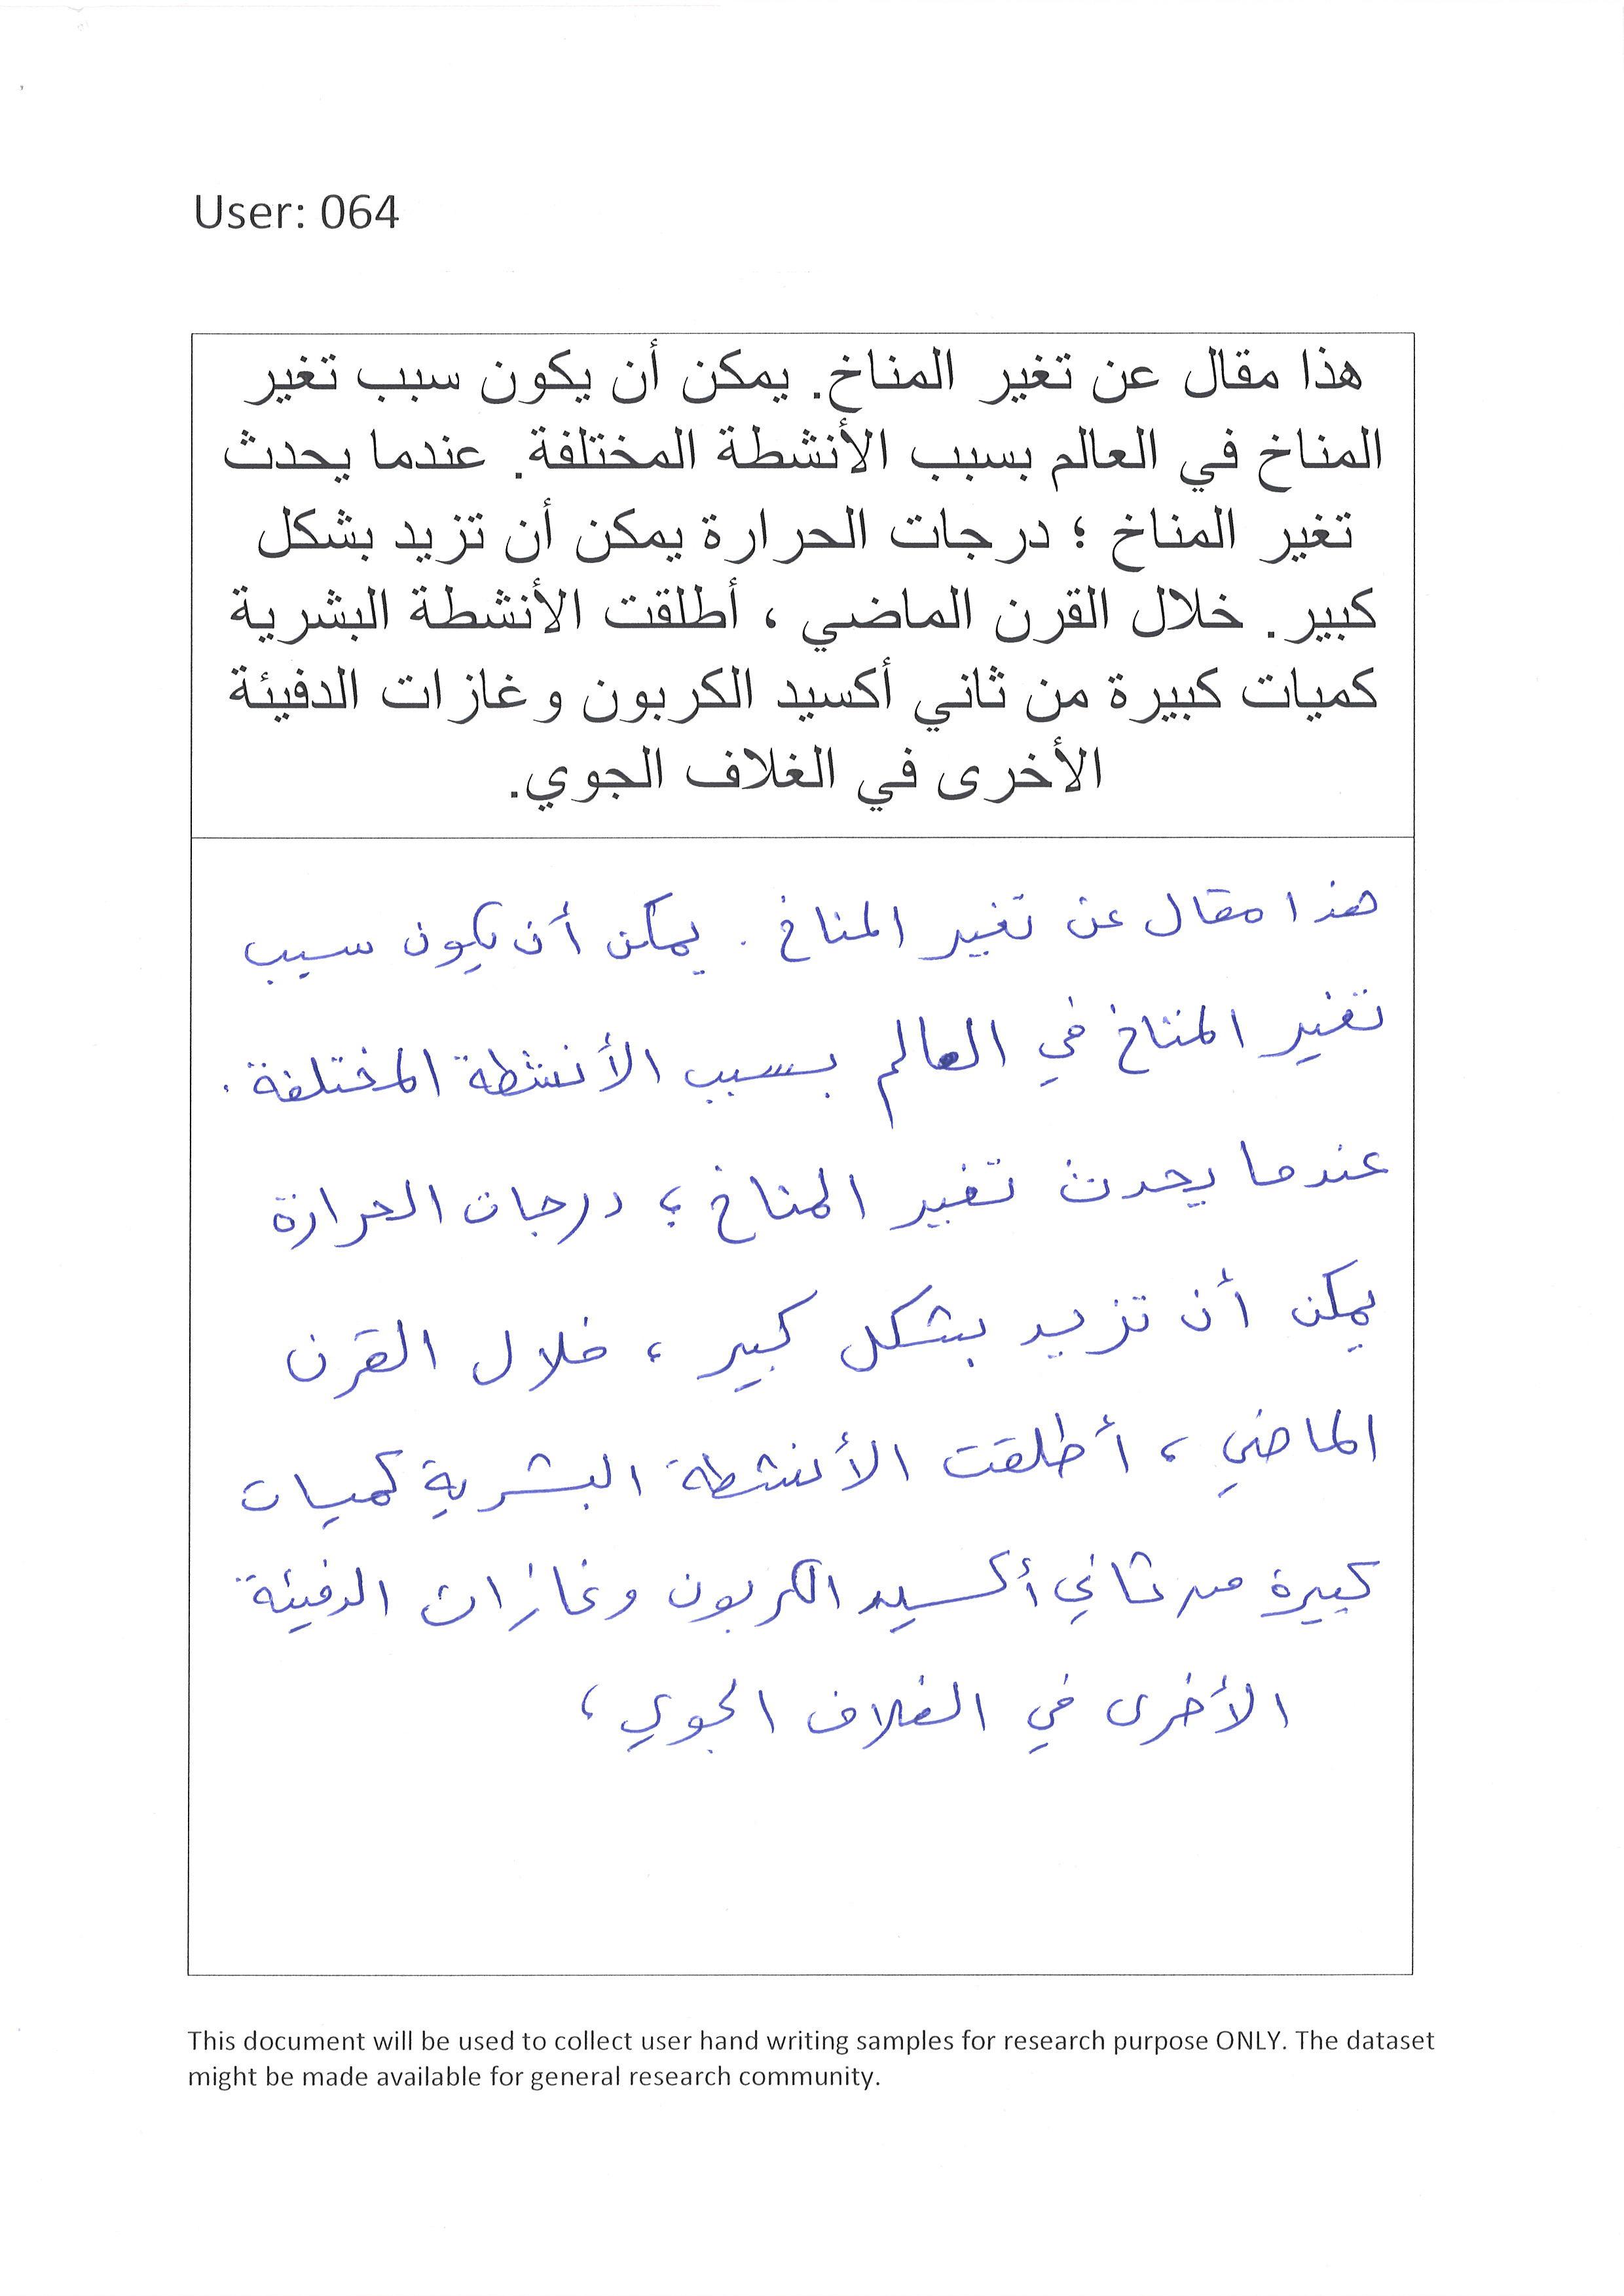 User: 064
هذا مقال عن تغير المناخ. يمكن أن يكون سبب تغير
المناخ في العالم بسبب الأنشطة المختلفة. عندما يحدث
تغير المناخ ؛ درجات الحرارة يمكن أن تزيد بشكل
كبير. خلال القرن الماضي ، أطلقت الأنشطة البشرية
كميات كبيرة من ثاني أكسيد الكربون وغازات الدفيئة
الأخرى في الغلاف الجوي.
هذا مقال عن تغير المناخ . يمكن أن يكون سبب
تغير المناخ في العالم بسبب الأنشطة المختلفة .
عندما يحدث تغير المناخ ؛ درجات الحرارة
يمكن أن تزيد بشكل كبير ، خلال القرن
الماضي ، أطلقت الأنشطة البشرية كميات
كبيرة من ثاني أكسيد الكربون وغازات الدفيئة
الأخرى في الغلاف الجوي ،
This document will be used to collect user hand writing samples for research purpose ONLY. The dataset
might be made available for general research community.